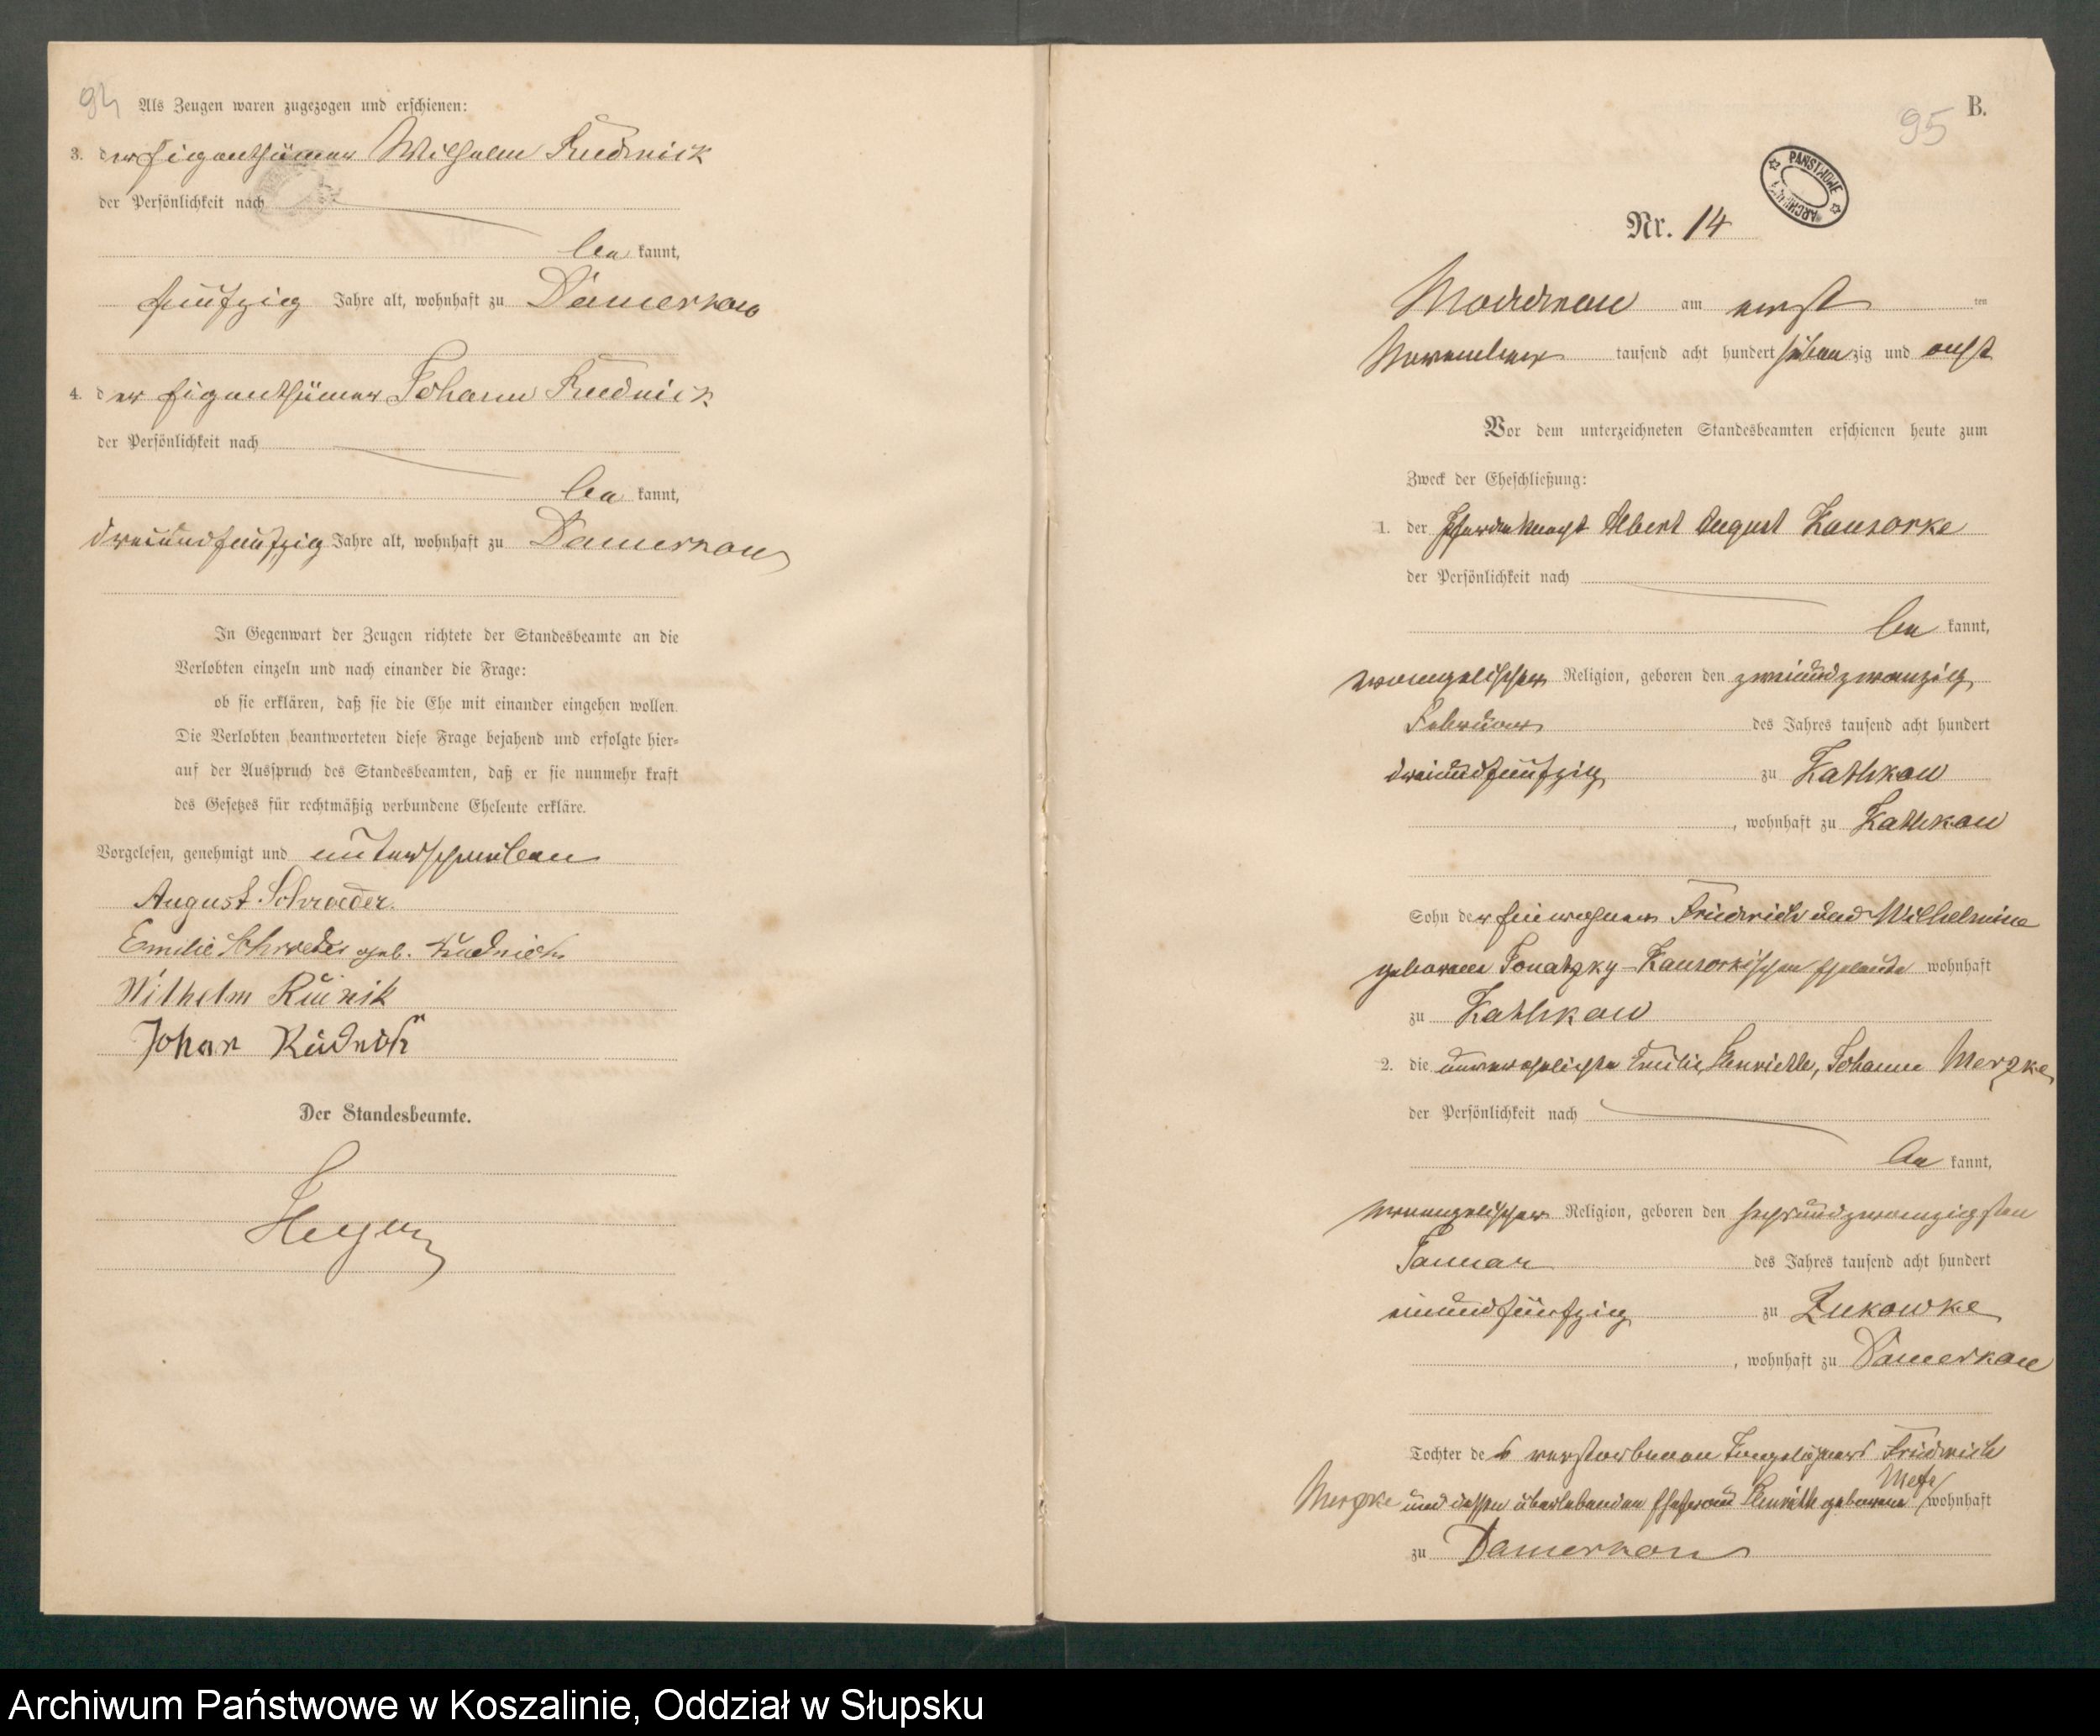 94
Als Zeugen waren zugezogen und erschienen:
3. der Eigenthümer Wilhelm Rudnick
der Persönlichkeit nach
be kannt,
fünfzig Jahre alt, wohnhaft zu Damerkow
4. der Eigenthümer Johann Rudnick
der Persönlichkeit nach
be kannt,
dreiundfünfzig Jahre alt, wohnhaft zu Damerkow
In Gegenwart der Zeugen richtete der Standesbeamte an die
Verlobten einzeln und nach einander die Frage:
ob sie erklären, daß sie die Ehe mit einander eingehen wollen.
Die Verlobten beantworteten diese Frage bejahend und erfolgte hier-
auf der Ausspruch des Standesbeamten, daß er sie nunmehr kraft
des Gesetzes für rechtmäßig verbundene Eheleute erkläre.
Vorgelesen, genehmigt und unterschrieben
August Schroeder.
Emilie Schroeder geb. Rudnick
Wilhelm
Johan
Der Standesbeamte.
B.
95
PAŃSTWOWE ARCHIWUM
Nr. 14
am erst ten
November tausend acht hundert sieben zig und acht
Vor dem unterzeichneten Standesbeamten erschienen heute zum
Zweck der Eheschließung:
1. der Pferdeknecht Albert August Kansorke
der Persönlichkeit nach
be kannt,
evangelischer Religion, geboren den zweiundzwanzig
Februar des Jahres tausend acht hundert
dreiundfünfzig zu Kathkow
, wohnhaft zu Kathkow
Sohn der Einwohner Friedrich und Wilhelmine
geborene Kansorkischen Eheleute wohnhaft
zu Kathkow
2. die unverehelichte Emilie, Henriette, Johanne Merzke
der Persönlichkeit nach
be kannt,
evangelischer Religion, geboren den sechsundzwanzigsten
Januar des Jahres tausend acht hundert
einundfünfzig zu Zukowke
, wohnhaft zu Damerkow
Tochter des verstorbenen Tagelöhners Friedrich
Merzke und dessen überlebenden Ehefrau Henriette geborene wohnhaft
zu Damerkow
Archiwum Państwowe w Koszalinie, Oddział w Słupsku